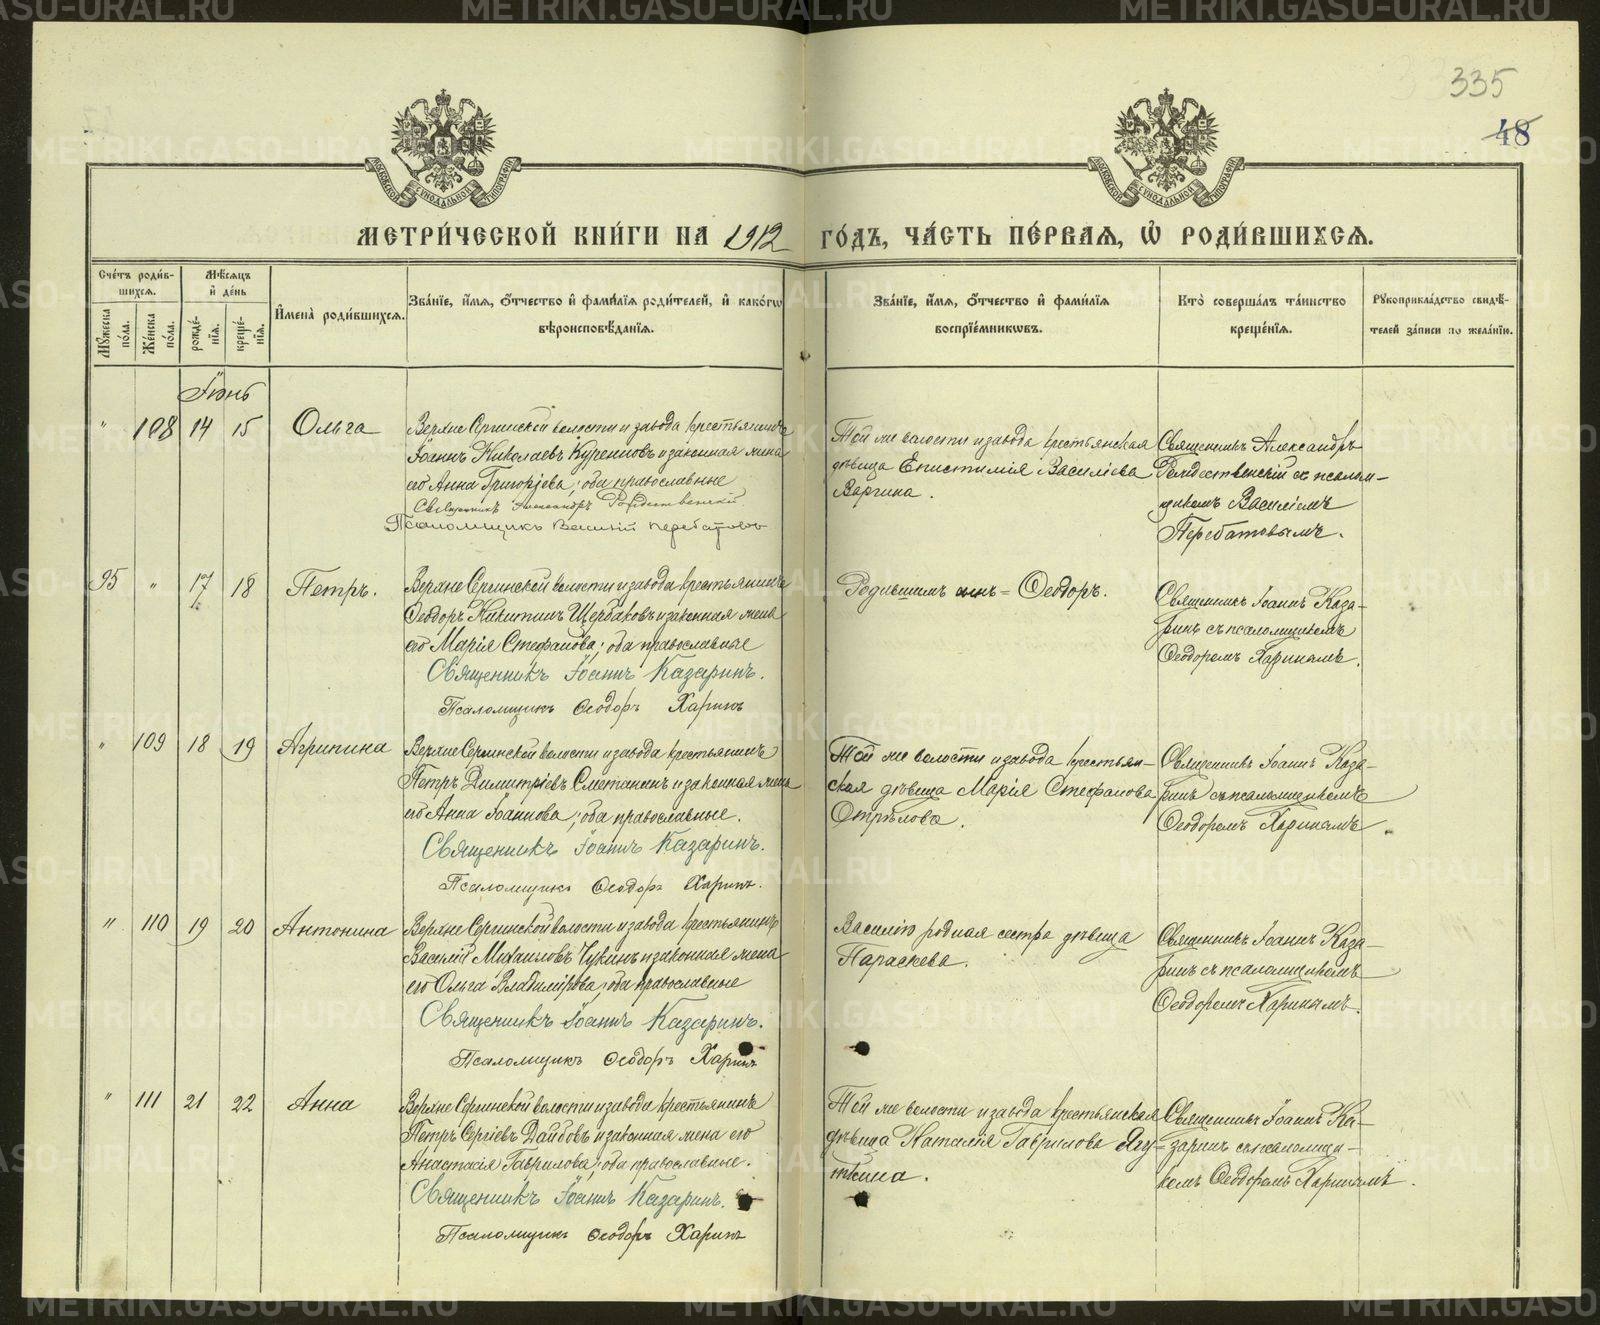 335
48
МЕТРИ́ЧЕСКОЙ КНИ́ГИ НА 1912 ГО́ДЪ, ЧА́СТЬ ПЕ́РВАЯ, Ѡ РОДИ́ВШИХСЯ.
Сче́тъ роди́в-
шихся.
Мѣ́сяцъ
и҆ де́нь
Мꙋ́жеска по́ла.
Же́нска по́ла.
рожде́-нїя.
креще́-нїя.
И҆мена̀ роди́вшихся.
Зва́нїе, и҆́мя, ѻ҆́тчество и҆ фами́лїя роди́телей, и҆ како́гѡ
вѣроисповѣ́данїя.
Зва́нїе, и҆́мя, ѻ҆́тчество и҆ фами́лїя
воспрїе́мникѡвъ.
Кто̀ соверша́лъ та́инство
креще́нїя.
Рꙋкоприкла́дство свидѣ́-
телей за́писи по жела́нїю.
Іюнь
" 108 14 15 Ольга
Верхне Сергинской волости и завода крестьянинъ
Іоаннъ Николаевъ Куренновъ и законная жена
его Анна Григорьева; оба православные
Священникъ Александръ Рождественскій
Псаломщикъ Василій Перебатовъ
Той же волости и завода крестьянская
дѣвица Епистимія Василіева
Варгина.
Священникъ Александръ
Рождественскій съ псалом-
щикомъ Василіемъ
Перебатовымъ.
95 " 17 18 Петръ.
Верхне Сергинской волости и завода крестьянинъ
Ѳеодоръ Никитинъ Щербаковъ и законная жена
его Марія Стефанова; оба православные
Священникъ Іоаннъ Казаринъ.
Псаломщикъ Ѳеодоръ Харинъ
Ѳеодоръ.
Священникъ Іоаннъ Каза-
ринъ съ псаломщикомъ
Ѳеодоромъ Харинымъ.
" 109 18 19 Агрипина
Верхне Сергинской волости и завода крестьянинъ
Петръ Димитріевъ Сметанинъ и законная жена
его Анна Іоаннова; оба православные.
Священникъ Іоаннъ Казаринъ.
Псаломщикъ Ѳеодоръ Харинъ.
Той же волости и завода крестьян-
ская дѣвица Марія Стефанова
Отрѣлова.
Священникъ Іоаннъ Каза-
ринъ съ псаломщикомъ
Ѳеодоромъ Харинымъ.
" 110 19 20 Антонина
Верхне Сергинской волости и завода крестьянинъ
Василій Михаиловъ Чукинъ и законная жена
его Ольга Владимірова; оба православные
Священникъ Іоаннъ Казаринъ.
Псаломщикъ Ѳеодоръ Харинъ
Василію родная сестра дѣвица
Параскева.
Священникъ Іоаннъ Каза-
ринъ съ псаломщикомъ
Ѳеодоромъ Харинымъ.
" 111 21 22 Анна
Верхне Сергинской волости и завода крестьянинъ
Петръ Сергіевъ Дайбовъ и законная жена его
Анастасія Гаврилова; оба православные.
Священникъ Іоаннъ Казаринъ.
Псаломщикъ Ѳеодоръ Харинъ
Той же волости и завода крестьянская
дѣвица Наталія Гаврилова Ягу-
ткина.
Священникъ Іоаннъ Ка-
заринъ съ псаломщи-
комъ Ѳеодоромъ Харинымъ.
METRIKI.GASO-URAL.RU